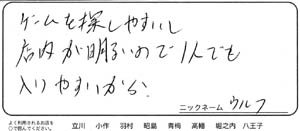 ゲームを探しやすいし
店内が明るいので1人でも
入りやすいから
ニックネーム ウルフ
よく利用されるお店を
○で囲んでください。 立川 小作 羽村 昭島 青梅 高幡 堀之内 八王子